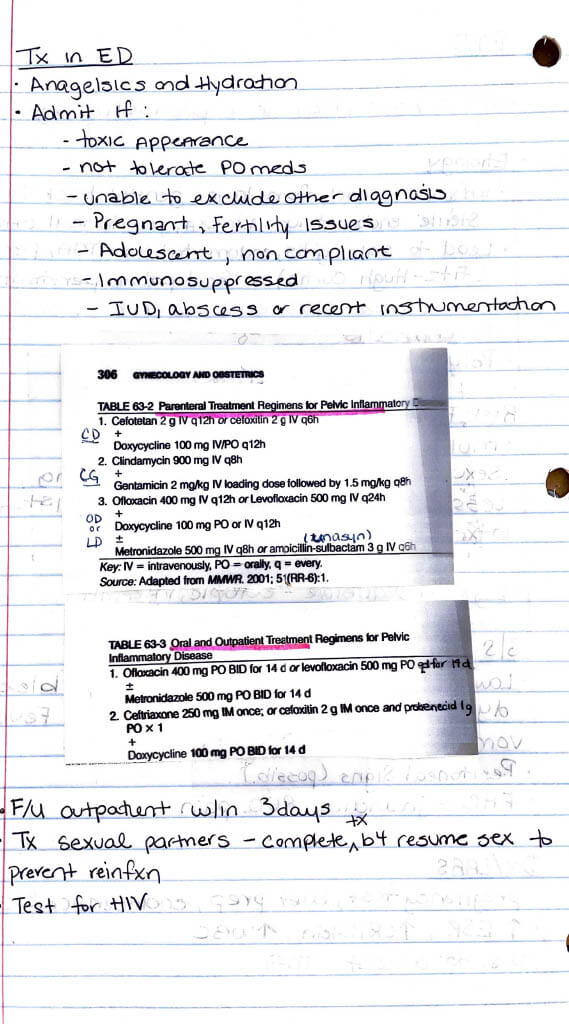 Tx in ED
· Anagelsics and Hydration
· Admit if :
- toxic Appearance
- not tolerate PO meds
- unable to exclude other diagnosis
- Pregnant, Fertility Issues
- Adolescent, non compliant
- Immunosuppressed
- IUD, abscess or recent instrumentation
306 GYNECOLOGY AND OBSTETRICS
TABLE 63-2 Parenteral Treatment Regimens for Pelvic Inflammatory
1. Cefotetan 2 g IV q12h or cefoxitin 2 g IV q6h
CD +
Doxycycline 100 mg IV/PO q12h
2. Clindamycin 900 mg IV q8h
CG +
Gentamicin 2 mg/kg IV loading dose followed by 1.5 mg/kg q8h
3. Ofloxacin 400 mg IV q12h or Levofloxacin 500 mg IV q24h
+
OD or LD
Doxycycline 100 mg PO or IV q12h
± (unasyn)
Metronidazole 500 mg IV q8h or ampicillin-sulbactam 3 g IV q6h
Key: IV = intravenously, PO = orally, q = every.
Source: Adapted from MMWR. 2001; 51(RR-6):1.
TABLE 63-3 Oral and Outpatient Treatment Regimens for Pelvic
Inflammatory Disease
1. Ofloxacin 400 mg PO BID for 14 d or levofloxacin 500 mg PO qd for 14 d
±
Metronidazole 500 mg PO BID for 14 d
2. Ceftriaxone 250 mg IM once; or cefoxitin 2 g IM once and probenecid 1g
PO x 1
+
Doxycycline 100 mg PO BID for 14 d
· F/U outpatient w/in 3days
· Tx sexual partners - complete tx b4 resume sex to
prevent reinfxn
· Test for HIV